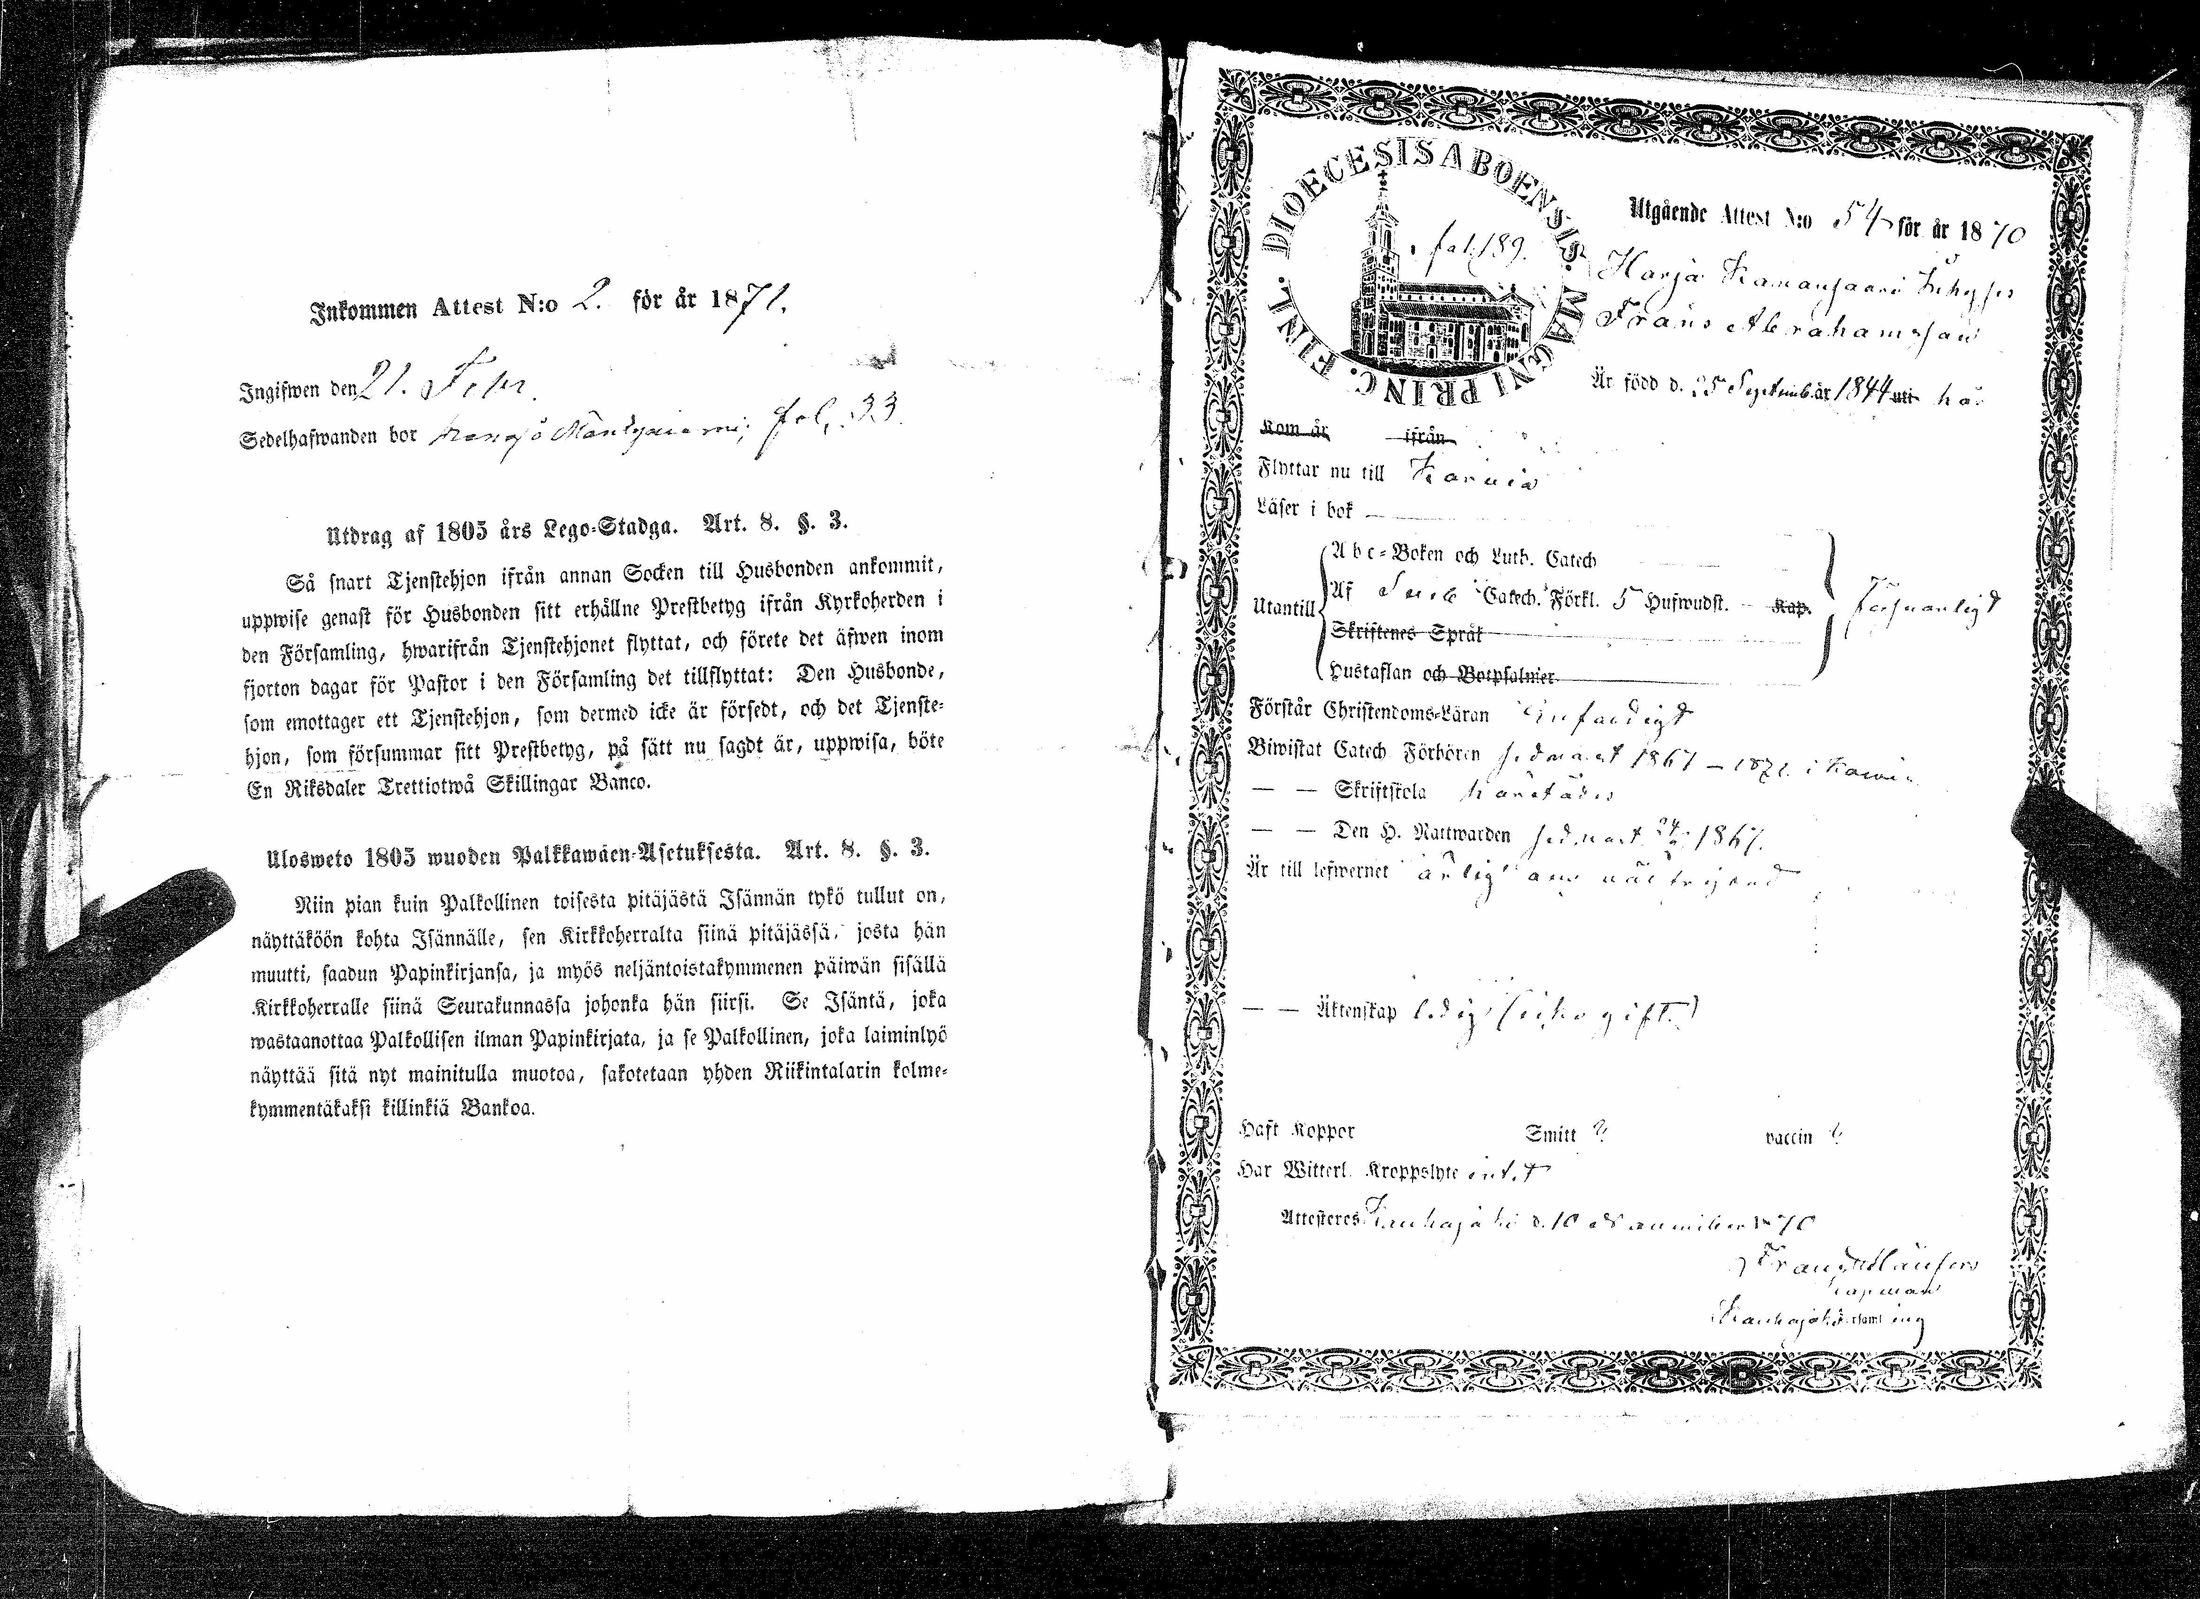 Inkommen Attest N:o 2. för år 1871.
Ingifwen den 21. Febr.
Sedelhafwanden bor fol. 33.
Utdrag af 1805 års Lego-Stadga. Art. 8. §. 3.
Så snart Tjenstehjon ifrån annan Socken till Husbonden ankommit,
uppwise genast för Husbonden sitt erhållne Prestbetyg ifrån Kyrkoherden i
den Församling, hwarifrån Tjenstehjonet flyttat, och förete det äfwen inom
fjorton dagar för Pastor i den Församling det tillflyttat: Den Husbonde,
som emottager ett Tjenstehjon, som dermed icke är försedt, och det Tjenste-
hjon, som försummar sitt Prestbetyg, på sätt nu sagdt är, uppwisa, böte
En Riksdaler Trettiotwå Skillingar Banco.
Ulosweto 1805 wuoden Palkkawäen-Asetuksesta. Art. 8. §. 3.
Niin pian kuin Palkollinen toisesta pitäjästä Isännän tykö tullut on,
näyttäköön kohta Isännälle, sen Kirkkoherralta siinä pitäjässä, josta hän
muutti, saadun Papinkirjansa, ja myös neljäntoistakymmenen päiwän sisällä
Kirkkoherralle siinä Seurakunnassa johonka hän siirsi. Se Isäntä, joka
wastaanottaa Palkollisen ilman Papinkirjata, ja se Palkollinen, joka laiminlyö
näyttää sitä nyt mainitulla muotoa, sakotetaan yhden Riikintalarin kolme-
kymmentäkaksi killinkiä Bankoa.
DIOECESIS ABOENSIS. MAGNI PRINC. FINL.
fol. 189.
Utgående Attest N:o 54 för år 1870
Harja
Frans Abrahamsson
Är född d. 25 September 1844 uti här
Kom år ifrån
Flyttar nu till Karvia
Läser i bok
Abc-Boken och Luth. Catech
Utantill Af Catech. Förkl. 5 Hufwudst. Kap. försvarligt
Skriftenes Språk
Hustaflan och Botpsalmer.
Förstår Christendoms-Läran enfaldigt
Biwistat Catech Förhören sednast 1867 – i Karvia
— — Skriftskola härstädes
— — Den H. Nattwarden sednast 1867.
Är till lefwernet ärlig och väl frejdad
— — Äktenskap ledig (icke gift.)
Haft Koppor Smitt vaccin
Har Witterl. Kroppslyte intet
Attesteres Kauhajoki d. 10 November 1870
Frans
Kapellan
Kauhajoki